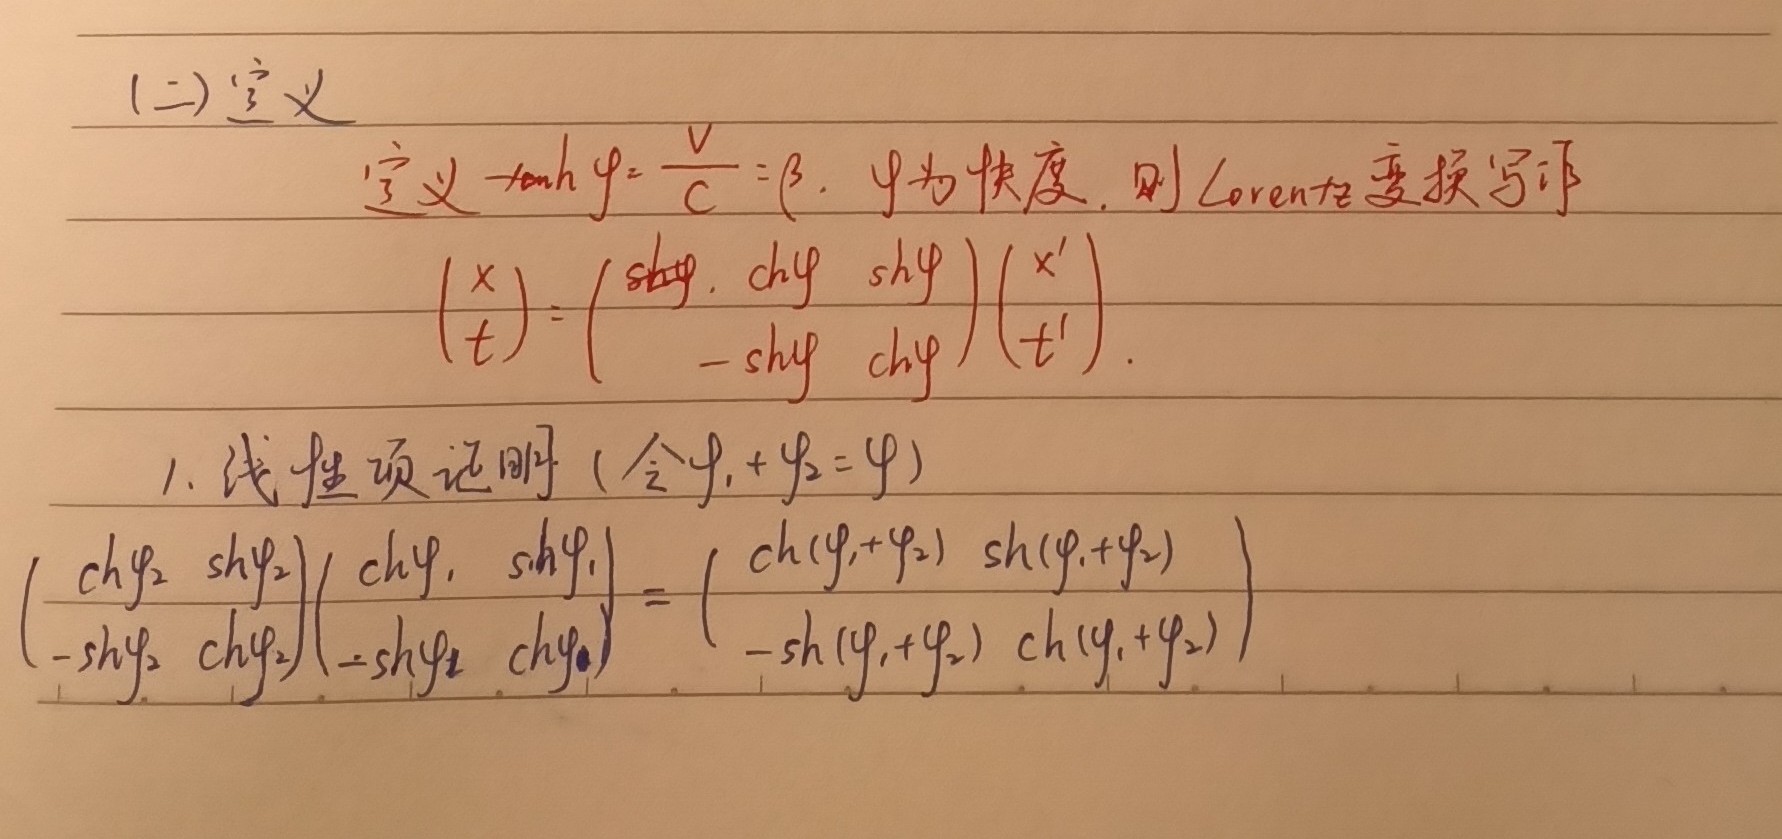 (二) 定义
定义 tanh φ = V/C = β. φ为快度. 则 Lorentz 变换写作
(x t) = (chφ shφ -shφ chφ) (x' t').
1. 线性项证明 (令φ₁+φ₂=φ)
(chφ₂ shφ₂) (chφ₁ shφ₁) = (ch(φ₁+φ₂) sh(φ₁+φ₂))
(-shφ₂ chφ₂) (-shφ₁ chφ₁) (-sh(φ₁+φ₂) ch(φ₁+φ₂))